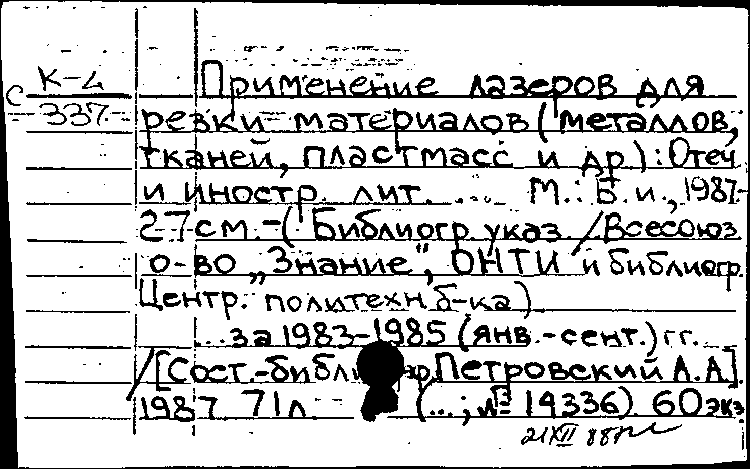 К-4
С 337
Применение лазеров для
резки материалов (металлов,
тканей, пластмасс и др.): Отеч.
и иностр. лит. ... М.: Б.и., 1987-
27 см. - (Библиогр. указ. / Всесоюз.
о-во „Знание", ОНТИ и библиогр.
Центр. политехн. б-ка)
...за 1983-1985 (янв.-сент.) гг.
/[Сост.-библиогр. Петровский А.А].
1987 71 л (...; № 14336) 60 экз
21 XII 88